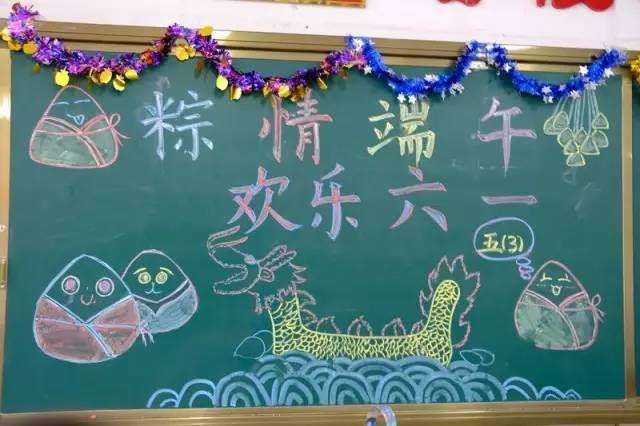 粽情端午
欢乐六一
五(3)